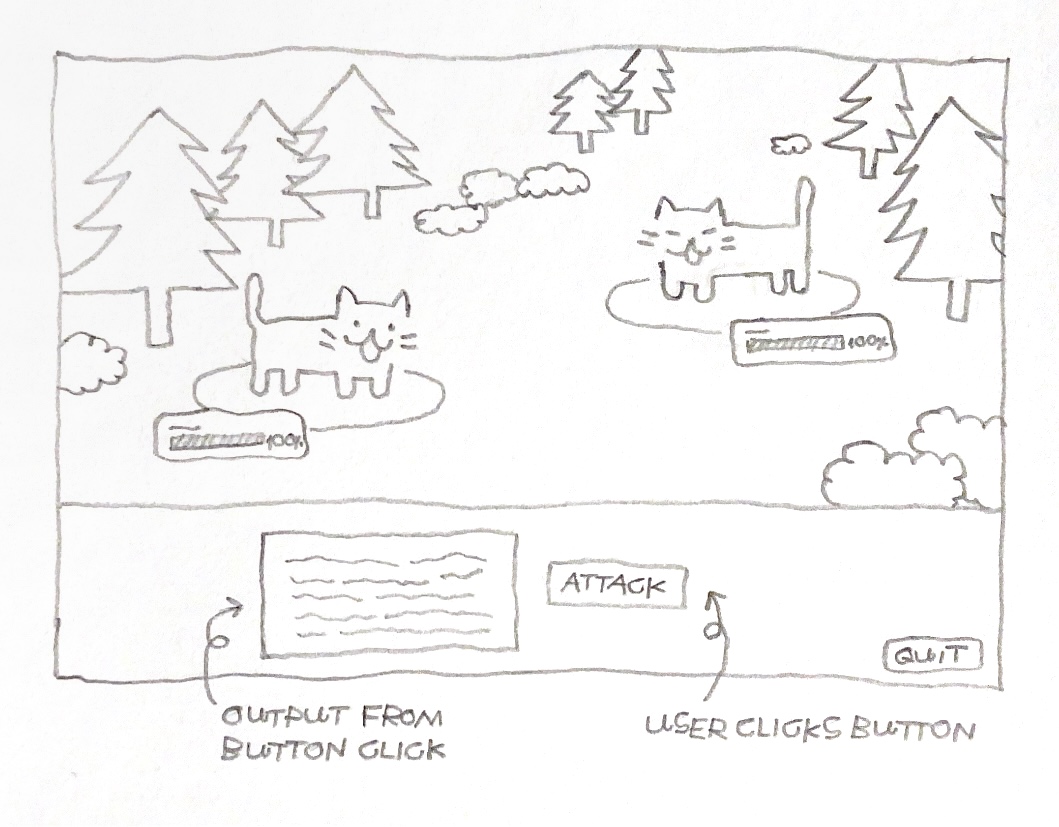 100%
100%
ATTACK
QUIT
OUTPUT FROM
BUTTON CLICK
USER CLICKS BUTTON